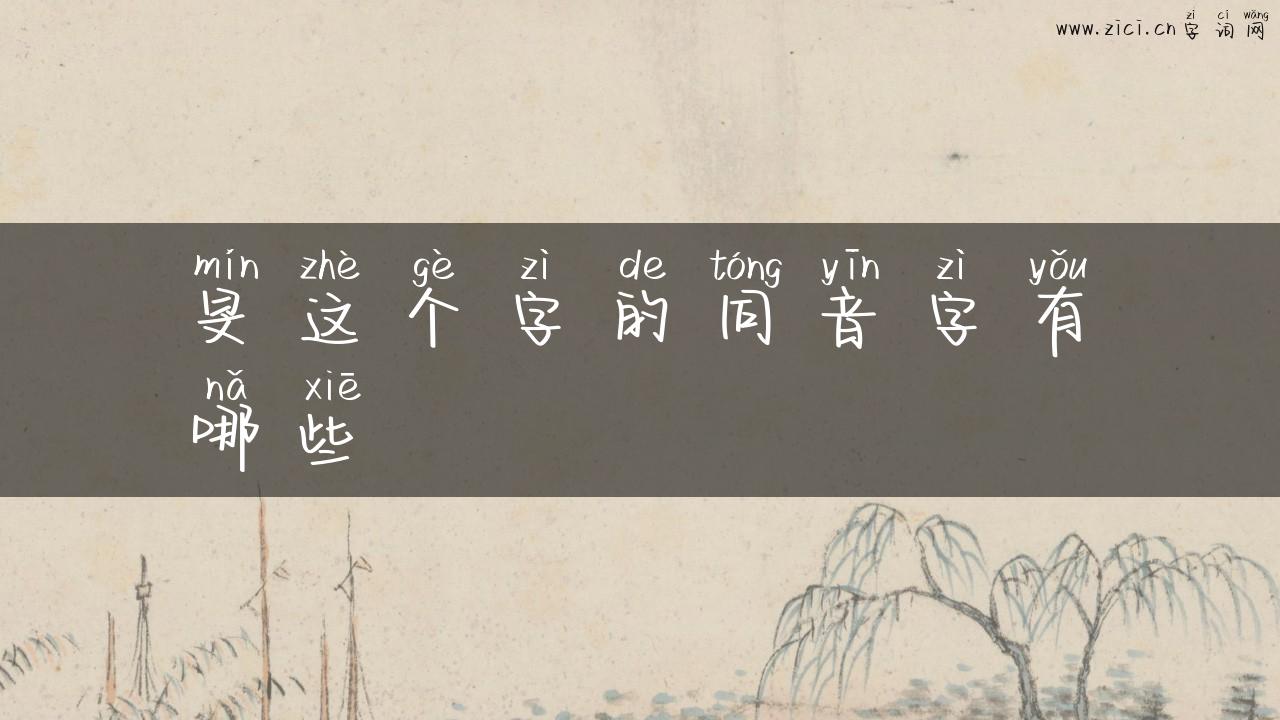 zì cí wǎng
www.zici.cn 字词网
mín zhè gè zì de tóng yīn zì yǒu
旻这个字的同音字有
nǎ xiē
哪些